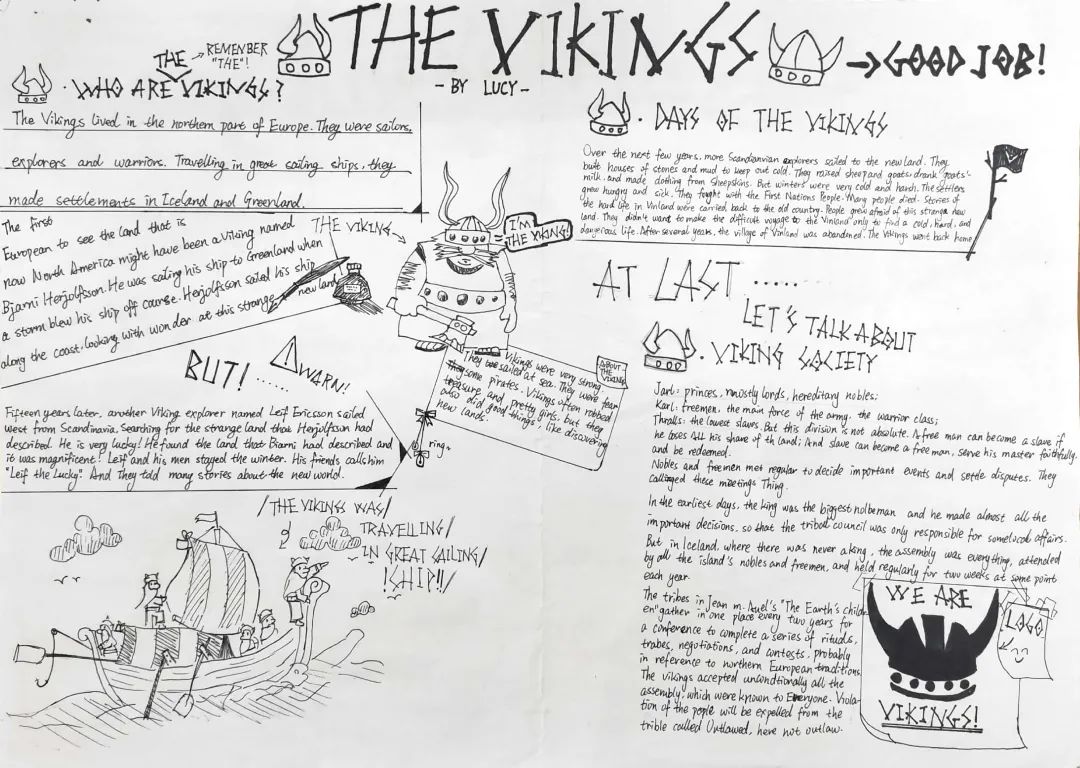 THE VIKINGS
→GOOD JOB!
- BY LUCY-
THE → REMEMBER
"THE"!
· WHO ARE VIKINGS?
The Vikings lived in the northern part of Europe. They were sailors,
explorers and warriors. Travelling in great sailing ships, they
made settlements in Iceland and Greenland.
The first
European to see the land that is
now North America might have been a Viking named
Bjarni Herjolfsson. He was sailing his ship to Greenland when
a storm blew his ship off course. Herjolfsson sailed his ship
along the coast, looking with wonder at this strange new land
THE VIKING
I'M
THE VIKING!
BUT! ......
WARN!
Fifteen years later, another Viking explorer named Leif Ericsson sailed
west from Scandinavia, Searching for the strange land that Herjolfsson had
described. He is very lucky! He found the land that Biarni had described and
it was magnificent! Leif and his men stayed the winter. His friends calls him
"Leif the Lucky". And They told many stories about the new world.
ABOUT
THE
VIKING
Vikings were very strong
They sailed at sea. They were fear
some pirates. Vikings often robbed
treasure and pretty girls, but they
also did good things, like discovering
new lands.
ring~
/THE VIKINGS WAS/
TRAVELLING/
IN GREAT SAILING/
!SHIP!!/
· DAYS OF THE VIKINGS
Over the next few years, more Scandianvian explorers sailed to the new land. They
built houses of stones and mud to keep out cold. They raised sheep and goats, drank goats'
milk, and made clothing from Sheepskins. But winters were very cold and harsh. The settlers
grew hungry and sick. They fought with the First Nations People. Many people died. Stories of
the hard life in Vinland were carried back to the old country. People grew afraid of this strange new
land. They didn't want to make the difficult voyage to the Vinland only to find a cold, hard, and
dangerous life. After several years, the village of Vinland was abandoned. The Vikings went back home
AT LAST .....
LET'S TALK ABOUT
· VIKING SOCIETY
Jarl: princes, mostly lords, hereditary nobles;
Karl: freemen, the main force of the army, the warrior class;
Thralls: the lowest slaves. But this division is not absolute. A free man can become a slave if
he loses All his share of th land; And slave can become a free man, serve his master faithfully.
and be redeemed.
Nobles and freemen met regular to decide important events and settle disputes. They
called these meetings Thing.
In the earliest days, the king was the biggest nolbeman and he made almost all the
important decisions, so that the tribal council was only responsible for some local affairs.
But in Iceland, where there was never a king, the assembly was everything, attended
by all the island's nobles and freemen, and held regularly for two weeks at some point
each year.
The tribes in Jean m. Auel's "The Earth's childr
en" gather in one place every two years for
a conference to complete a series of rituals,
trabes, negotiations, and contests, probably
in reference to northern European traditions.
The vikings accepted uncondtionally all the
assembly, which were known to Everyone. Viola-
tion of the pople will be expelled from the
trible called Outlawed, here not outlaw.
WE ARE
VIKINGS!
LOGO